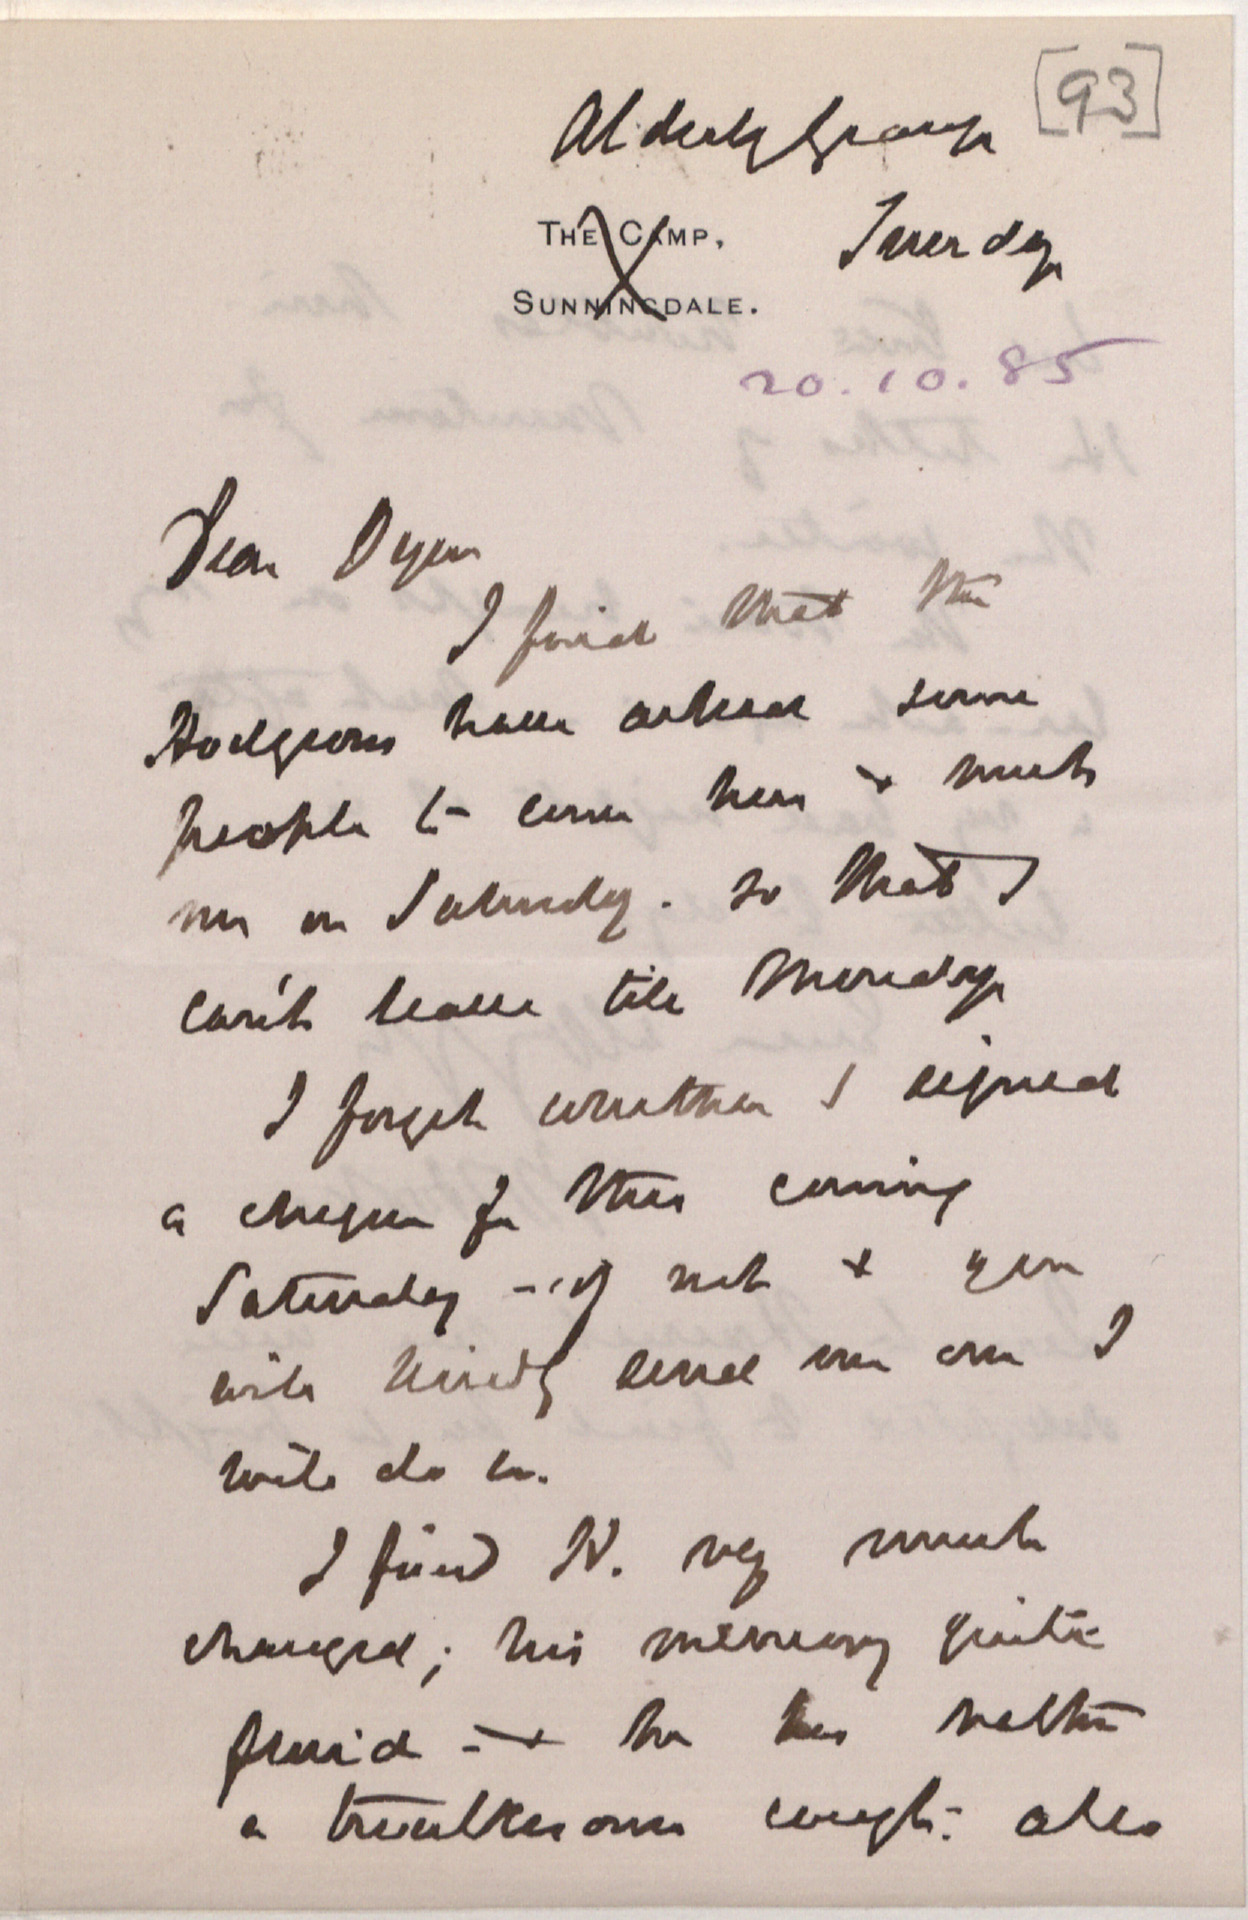 [93]
Alderley Grange
THE CAMP, Tuesday
SUNNINGDALE.
20.10.85
Dear Dyer
I find that the
Hodgsons have asked some
people to come here & meet
me on Saturday. so that I
can't leave till Monday
I forget whether I signed
a cheque for this coming
Saturday - if not & you
will kindly send me one I
will do so.
I find H. very much
changed; his memory quite
fluid - & he has rather
a troublesome cough. also